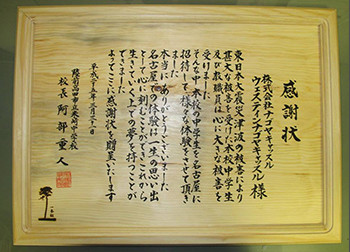 感謝状
株式会社ナゴヤキャッスル
ウェスティンナゴヤキャッスル 様
東日本大震災大津波の被害により
甚大な被害を受けた本校中学生
及び教職員は心に大きな被害を
受けました
そんな中本校の中学生を名古屋に
招待して様々な体験をさせて頂き
ました
本当にありがとうございました
名古屋での体験が一生の思い出
として心に刻むとともにこれから
生きていく上での夢を持つことが
できました
よってここに感謝状を贈呈いたします
平成二十五年三月三十一日
陸前高田市立米崎中学校
校長 阿部重人